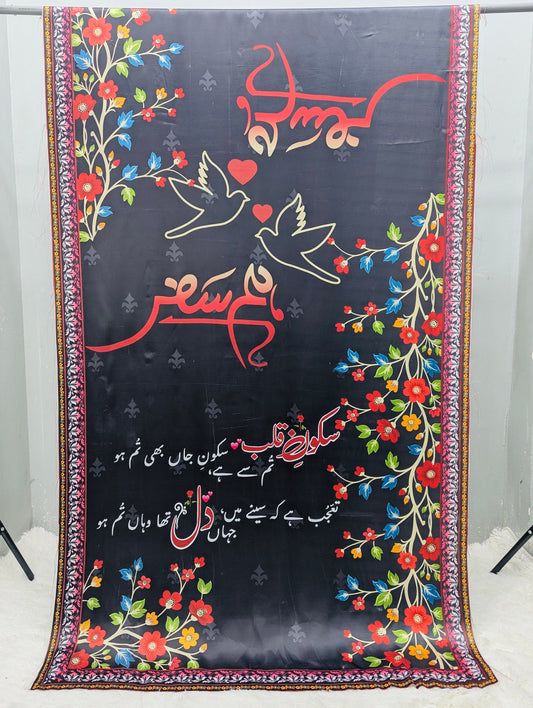 ہم سفر
ہم سفر
سکونِ قلب تُم سے ہے، سکونِ جاں بھی تُم ہو
تعجب ہے کہ سینے میں، جہاں دل تھا وہاں تُم ہو